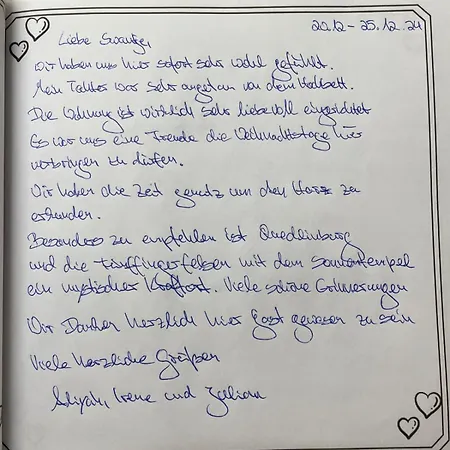 20.12 - 25.12.24
Liebe
wir haben uns hier sofort sehr wohl gefühlt.
Mein Tochter war sehr angetan von dem Hochbett.
Die Wohnung ist wirklich sehr liebevoll eingerichtet
Es war uns eine Freude die Weihnachtstage hier
verbringen zu dürfen.
Wir haben die Zeit genutz um den Harz zu
erkunden.
Besonders zu empfehlen ist Quedlinburg
und die Fünffingerfelsen mit dem Sonnentempel
ein mystischer Kraftort. Viele schöne Erinnerungen
Wir Danken herzlich hier Gast gewesen zu sein
Viele herzliche Grüßen
Irene und Julian